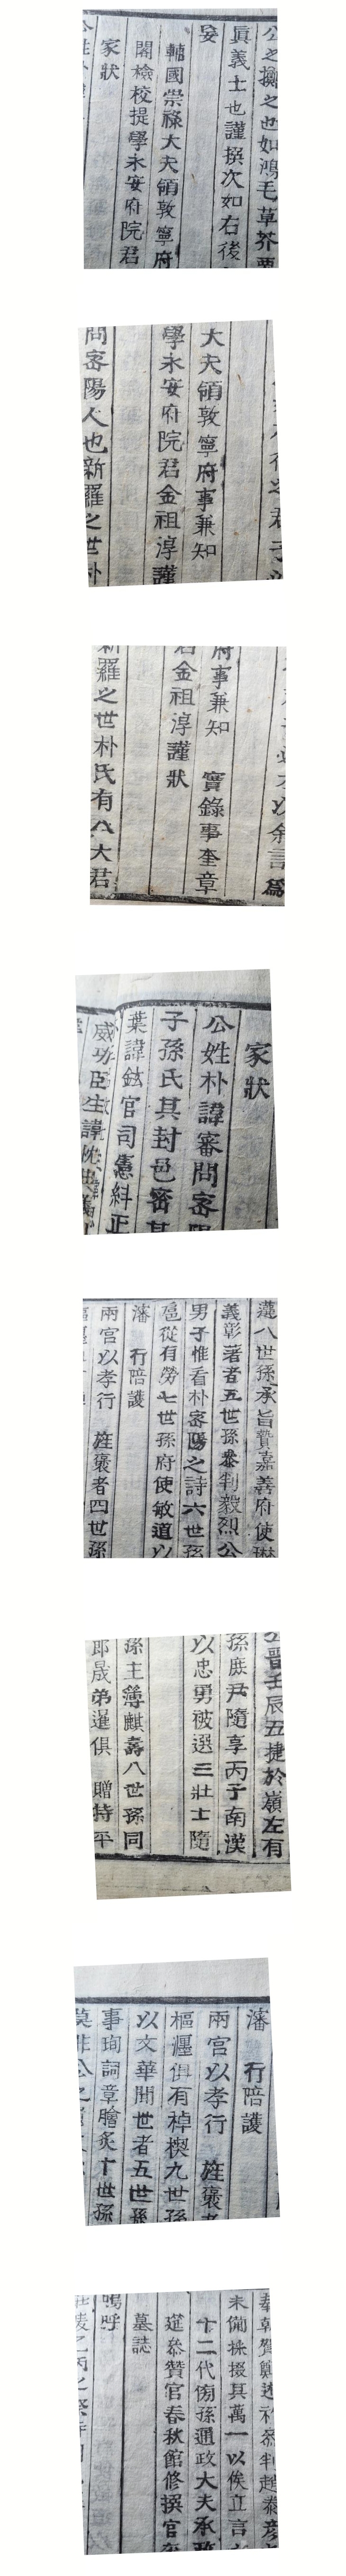 公之擲之也如鴻毛草芥
眞義士也謹撰次如右後
妥
輔國崇祿大夫領敦寧府
閣檢校提學永安府院君
家狀
大夫領敦寧府事兼知
學永安府院君金祖淳謹
問密陽人也新羅之世朴
府事兼知 實錄事奎章
君金祖淳謹狀
新羅之世朴氏有八大君
家狀
公姓朴諱審問密陽
子孫氏其封邑密其
葉諱鉉官司憲糾正
威功臣生諱忱
八世孫承旨贊嘉善府使
義彰著者五世孫參判毅烈公
男子惟看朴密陽之詩六世孫
扈從有勞七世孫府使敏道以
瀋 行陪護
兩宮以孝行 旌褒者四世孫
晋壬辰五捷於嶺左有
孫庶尹隨享丙子南漢
以忠勇被選三壯士隨
孫主簿麒壽八世孫同
郎晟弟暹俱 贈持平
瀋 行陪護
兩宮以孝行 旌褒者
樞漚俱有棹楔九世孫
以文華聞世者五世孫
事珣詞章膾炙十世孫
莫非公之
未備採掇其萬一以俟立言
十二代傍孫通政大夫承政
筵參贊官春秋館修撰官
墓誌
嗚呼